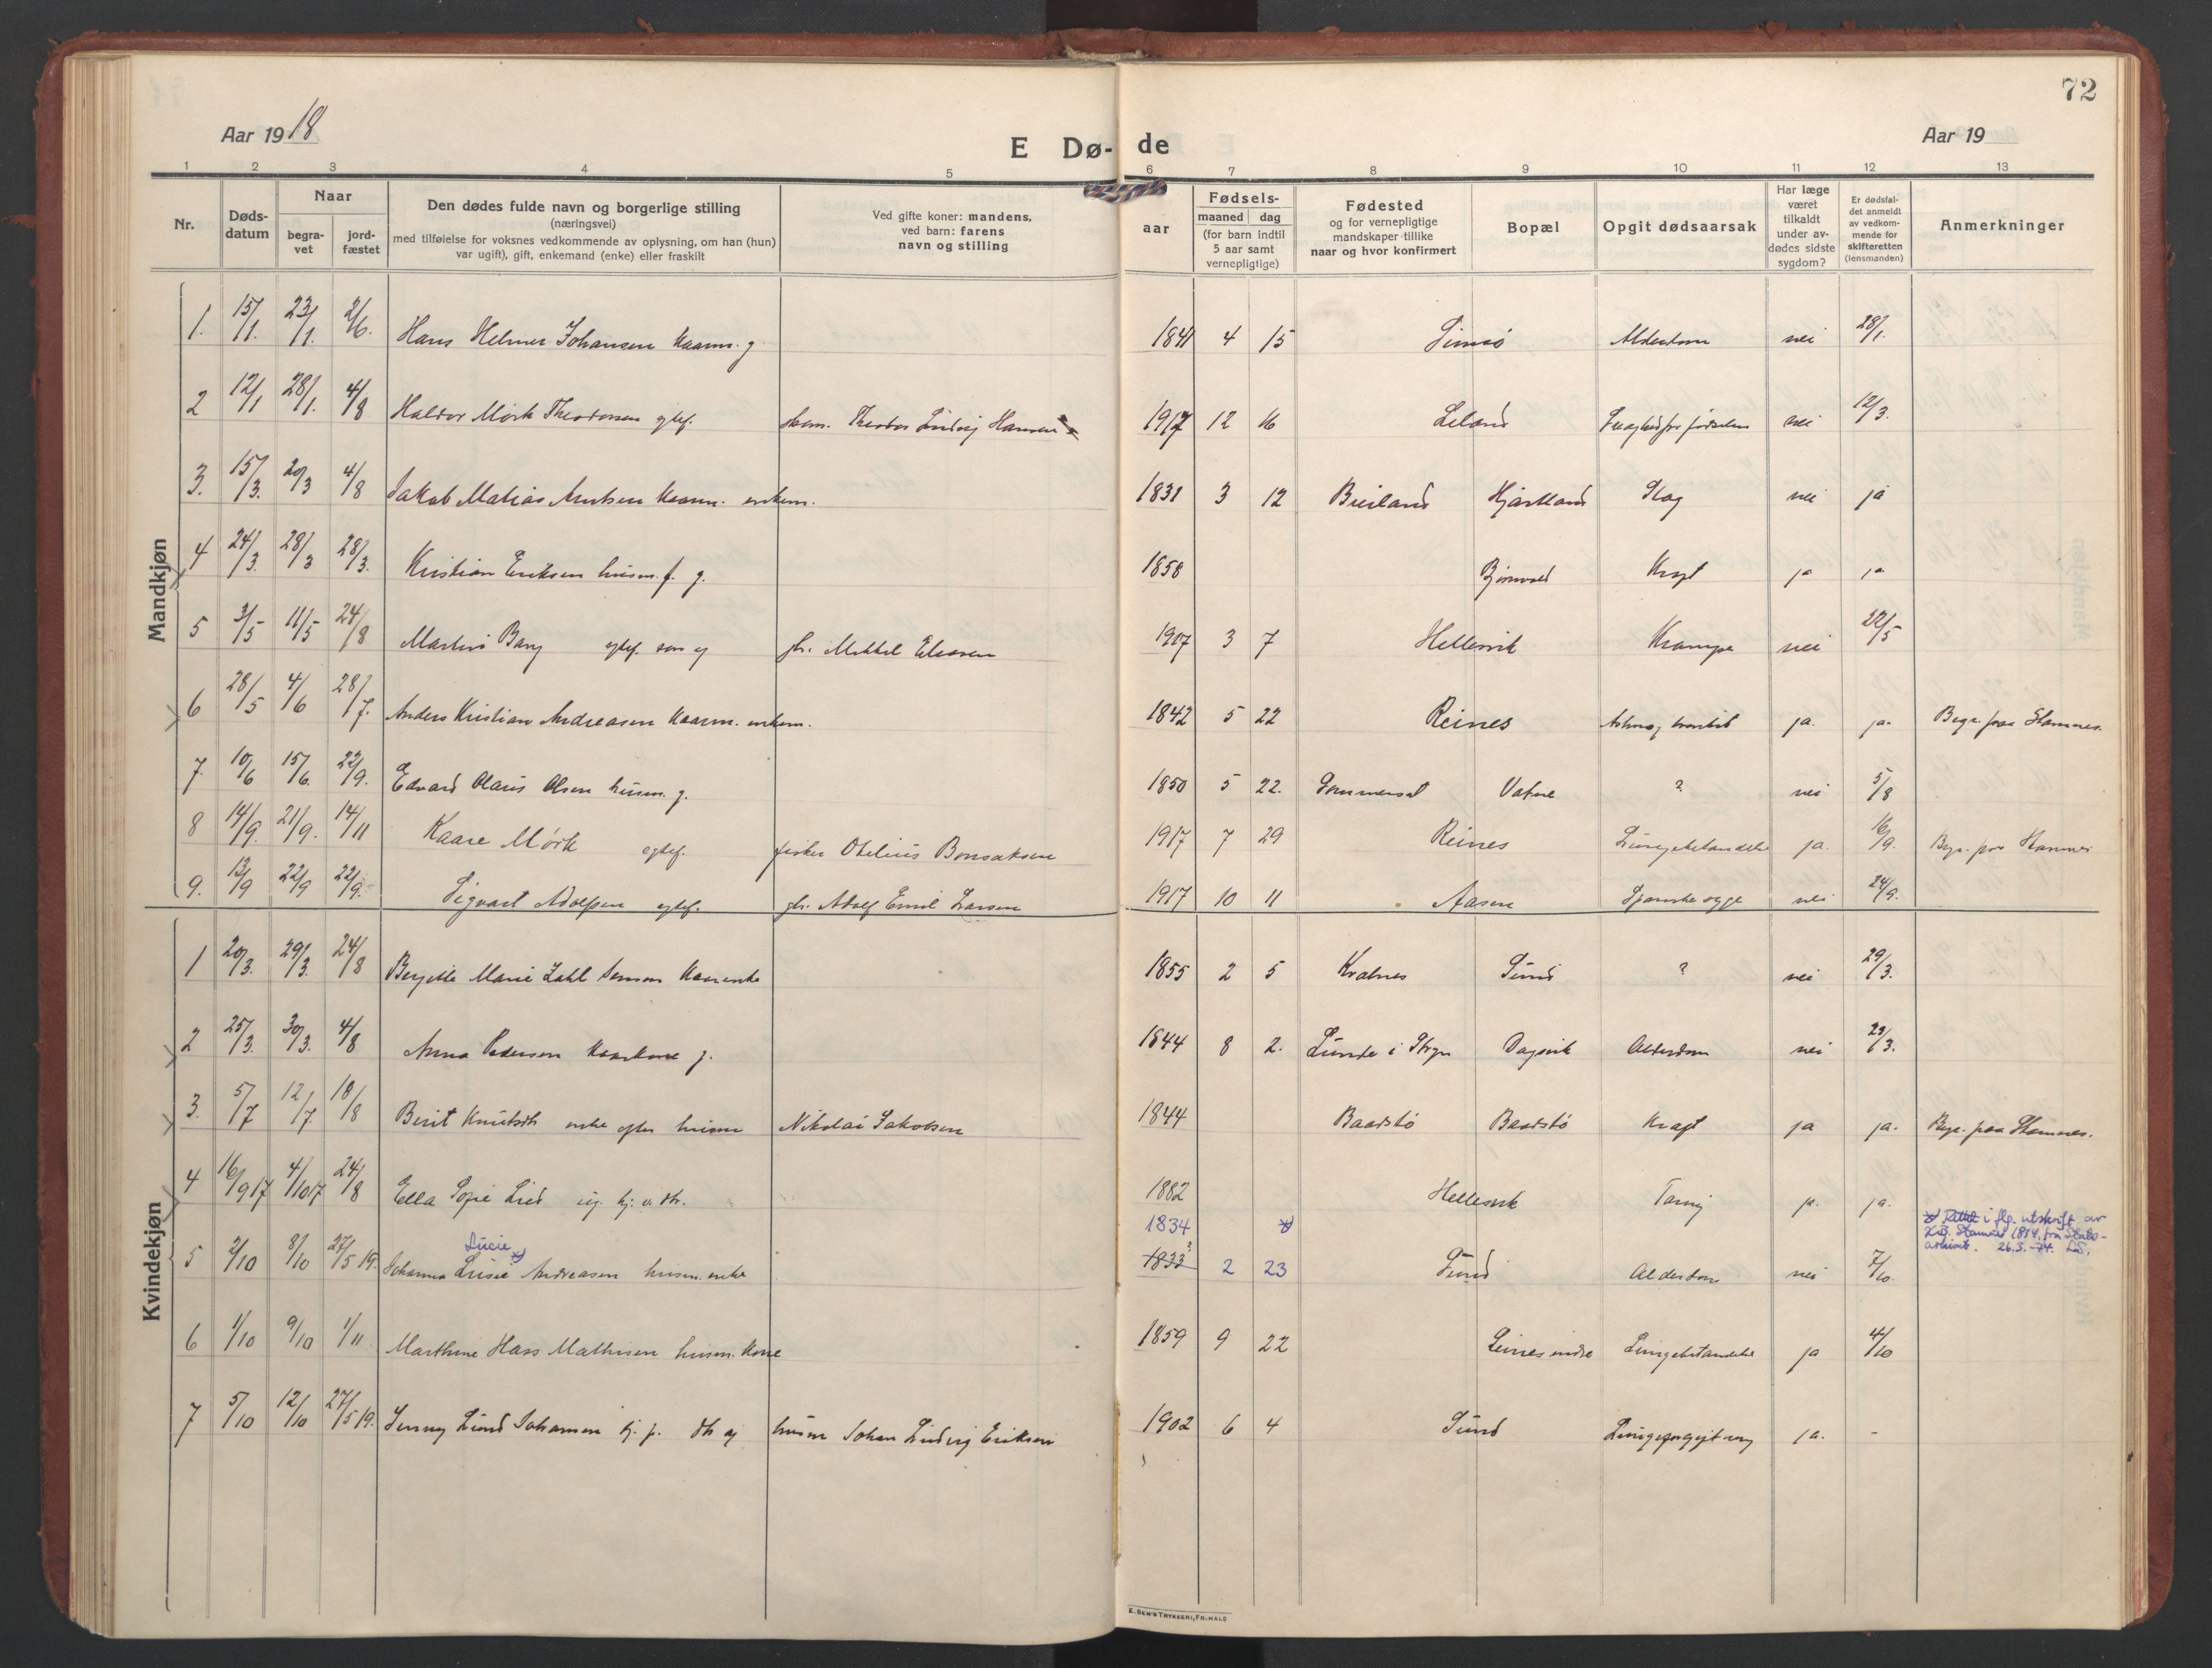 72
Aar 1918
E Dø-de
Aar 19
1 2 3 4 5 6 7 8 9 10 11 12 13
Nr.
Døds-datum
Naar
begra-vet
jord-fæstet
Den dødes fulde navn og borgerlige stilling
(næringsvei)
med tilføielse for voksnes vedkommende av oplysning, om han (hun)
var ugift), gift, enkemand (enke) eller fraskilt
Ved gifte koner: mandens,
ved barn: farens
navn og stilling
aar
Fødsels-
maaned dag
(for barn indtil
5 aar samt
vernepligtige)
Fødested
og for vernepligtige
mandskaper tillike
naar og hvor konfirmert
Bopæl
Opgit dødsaarsak
Har læge
været
tilkaldt
under av-
dødes sidste
sygdom?
Er dødsfal-
det anmeldt
av vedkom-
mende for
skifteretten
(lensmanden)
Anmerkninger
Mandkjøn
1. 15/1. 23/1. 2/6. Hans Helmer Johansen kaarm. g 1841 4 15 Simsø Alderdom nei 28/1.
2 12/1 28/1. 4/8 Haldor Mørk Theodorsen egtef. Theodor Ludvig Hansen 1917 12 16 Leland nei 12/3.
3. 15/3. 20/3 4/8 Jakob Matias kaarm. enkem. 1831 3 12 Hjartland Slag nei ja
4 24/3. 28/3 28/3. Kristian Eriksen husm. f. g. 1858 Kræft ja ja
5 3/5 11/5 24/8 Martin Berg egtef. søn af gbr. Mikkel Eliasen 1907 3 7 Hellesvik Krampe nei 22/5
6 28/5 4/6 28/7. Anders Kristian Andreasen kaarm. enkem. 1842 5 22 Reines ja. ja. Begr. paa Stamnes.
7. 10/6 15/6. 22/9. Edvard Olaus Olsen husm. g. 1850 5 22. Sommerset Vatne ? nei 5/8
8 14/9. 21/9. 14/11 Kaare Mørk egtef. fisker Otelius Bonsaksen 1917 7 29 Reines Lungebetændelse ja. 16/9. Begr. paa Stamnes
9. 13/9 22/9 22/9. Sigvart Adolfsen egtef. gbr. Adolf Emil Larsen 1917 10 11 Aasen Spanske syge nei 24/9.
Kvindekjøn
1 20/3. 29/3. 24/8 Bergitte Marie Zahl 1855 2 5 Sund ? nei 29/3.
2 25/3. 30/3. 4/8 Anna Pedersen kaarkone g. 1844 8 2. Lunde i Stryn Dagsvik Alderdom nei 23/3.
3. 5/7 12/7. 18/8 Berit Knutsdtr enke efter husm Nikolai Jakobsen 1844 Baadstø Baadstø Kræft ja ja. Begr. paa Stamnes.
4 16/9 17 4/10 17 24/8 Ella Sofie Lied ug. 1882 Hellesvik Tæring ja. ja.
5 2/10 8/10 27/5 19. Johanna Lusie Lucie Andreasen husm. enke 1834 1833 2 23 Sund Alderdom nei 7/10. Rettet i flg. utskrift av
K.B. Stamnes 1854, fra Stats-
arkivet. 26.3.-74.
6 1/10 9/10 1/11 Marthine Hass Mathisen husm. kone 1859 9 22 Leines indre Lungebetændelse ja 4/10
7 5/10 12/10 27/5 19. Jenny Lund Johansen hj. p. dtr af husm Johan Ludvig Eriksen 1902 6 4 Sund ja. -
E. SEM'S TRYKKERI, FR.HALD